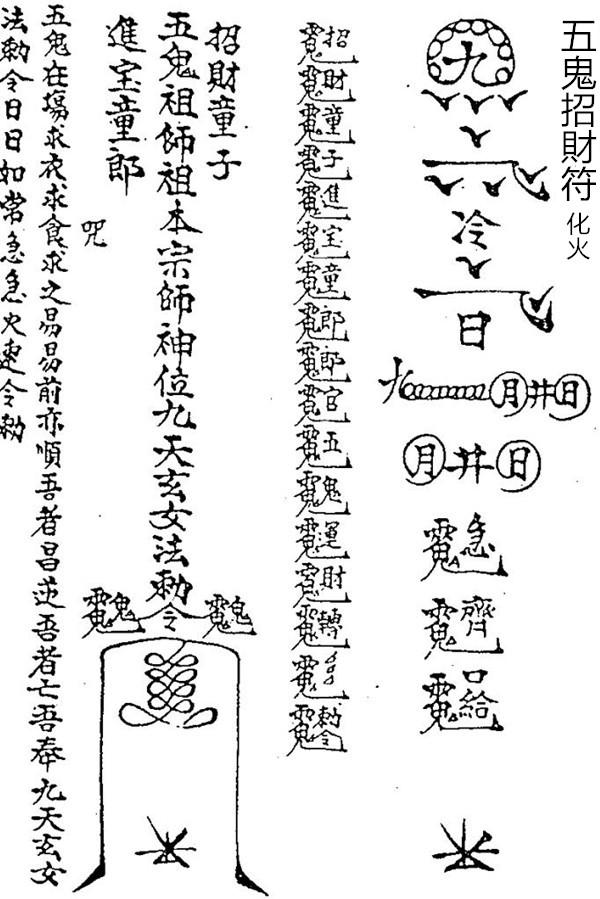 五鬼招財符 化火
九
冷
日
九 月井日
月井日
急
齊
口給
招財童子進宝童郎郎官五鬼運財轉
勅令
招財童子
五鬼祖師祖本宗師神位九天玄女法勅令
進宝童郎
鬼
鬼
咒
五鬼在場求衣求食求之易易前亦順吾者昌逆吾者亡吾奉九天玄女
法勅令日日如常急急火速令勅